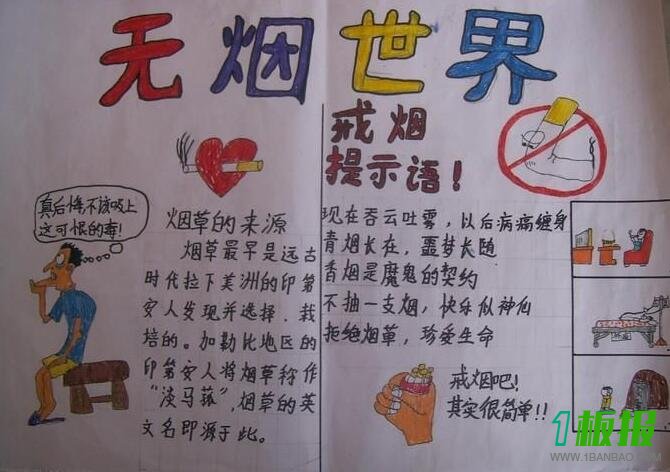 无烟世界
戒烟
提示语！
真后悔不该吸上
这可恨的毒！
烟草的来源
烟草最早是远古
时代拉丁美洲的印第
安人发现并选择．栽
培的。加勒比地区的
印第安人将烟草称作
“淡马菰”，烟草的英
文名即源于此。
现在吞云吐雾，以后病痛缠身
青烟长在，噩梦长随
香烟是魔鬼的契约
不抽一支烟，快乐似神仙
拒绝烟草，珍爱生命
戒烟吧！
其实很简单！！
1板报
WWW.1BANBAO.COM